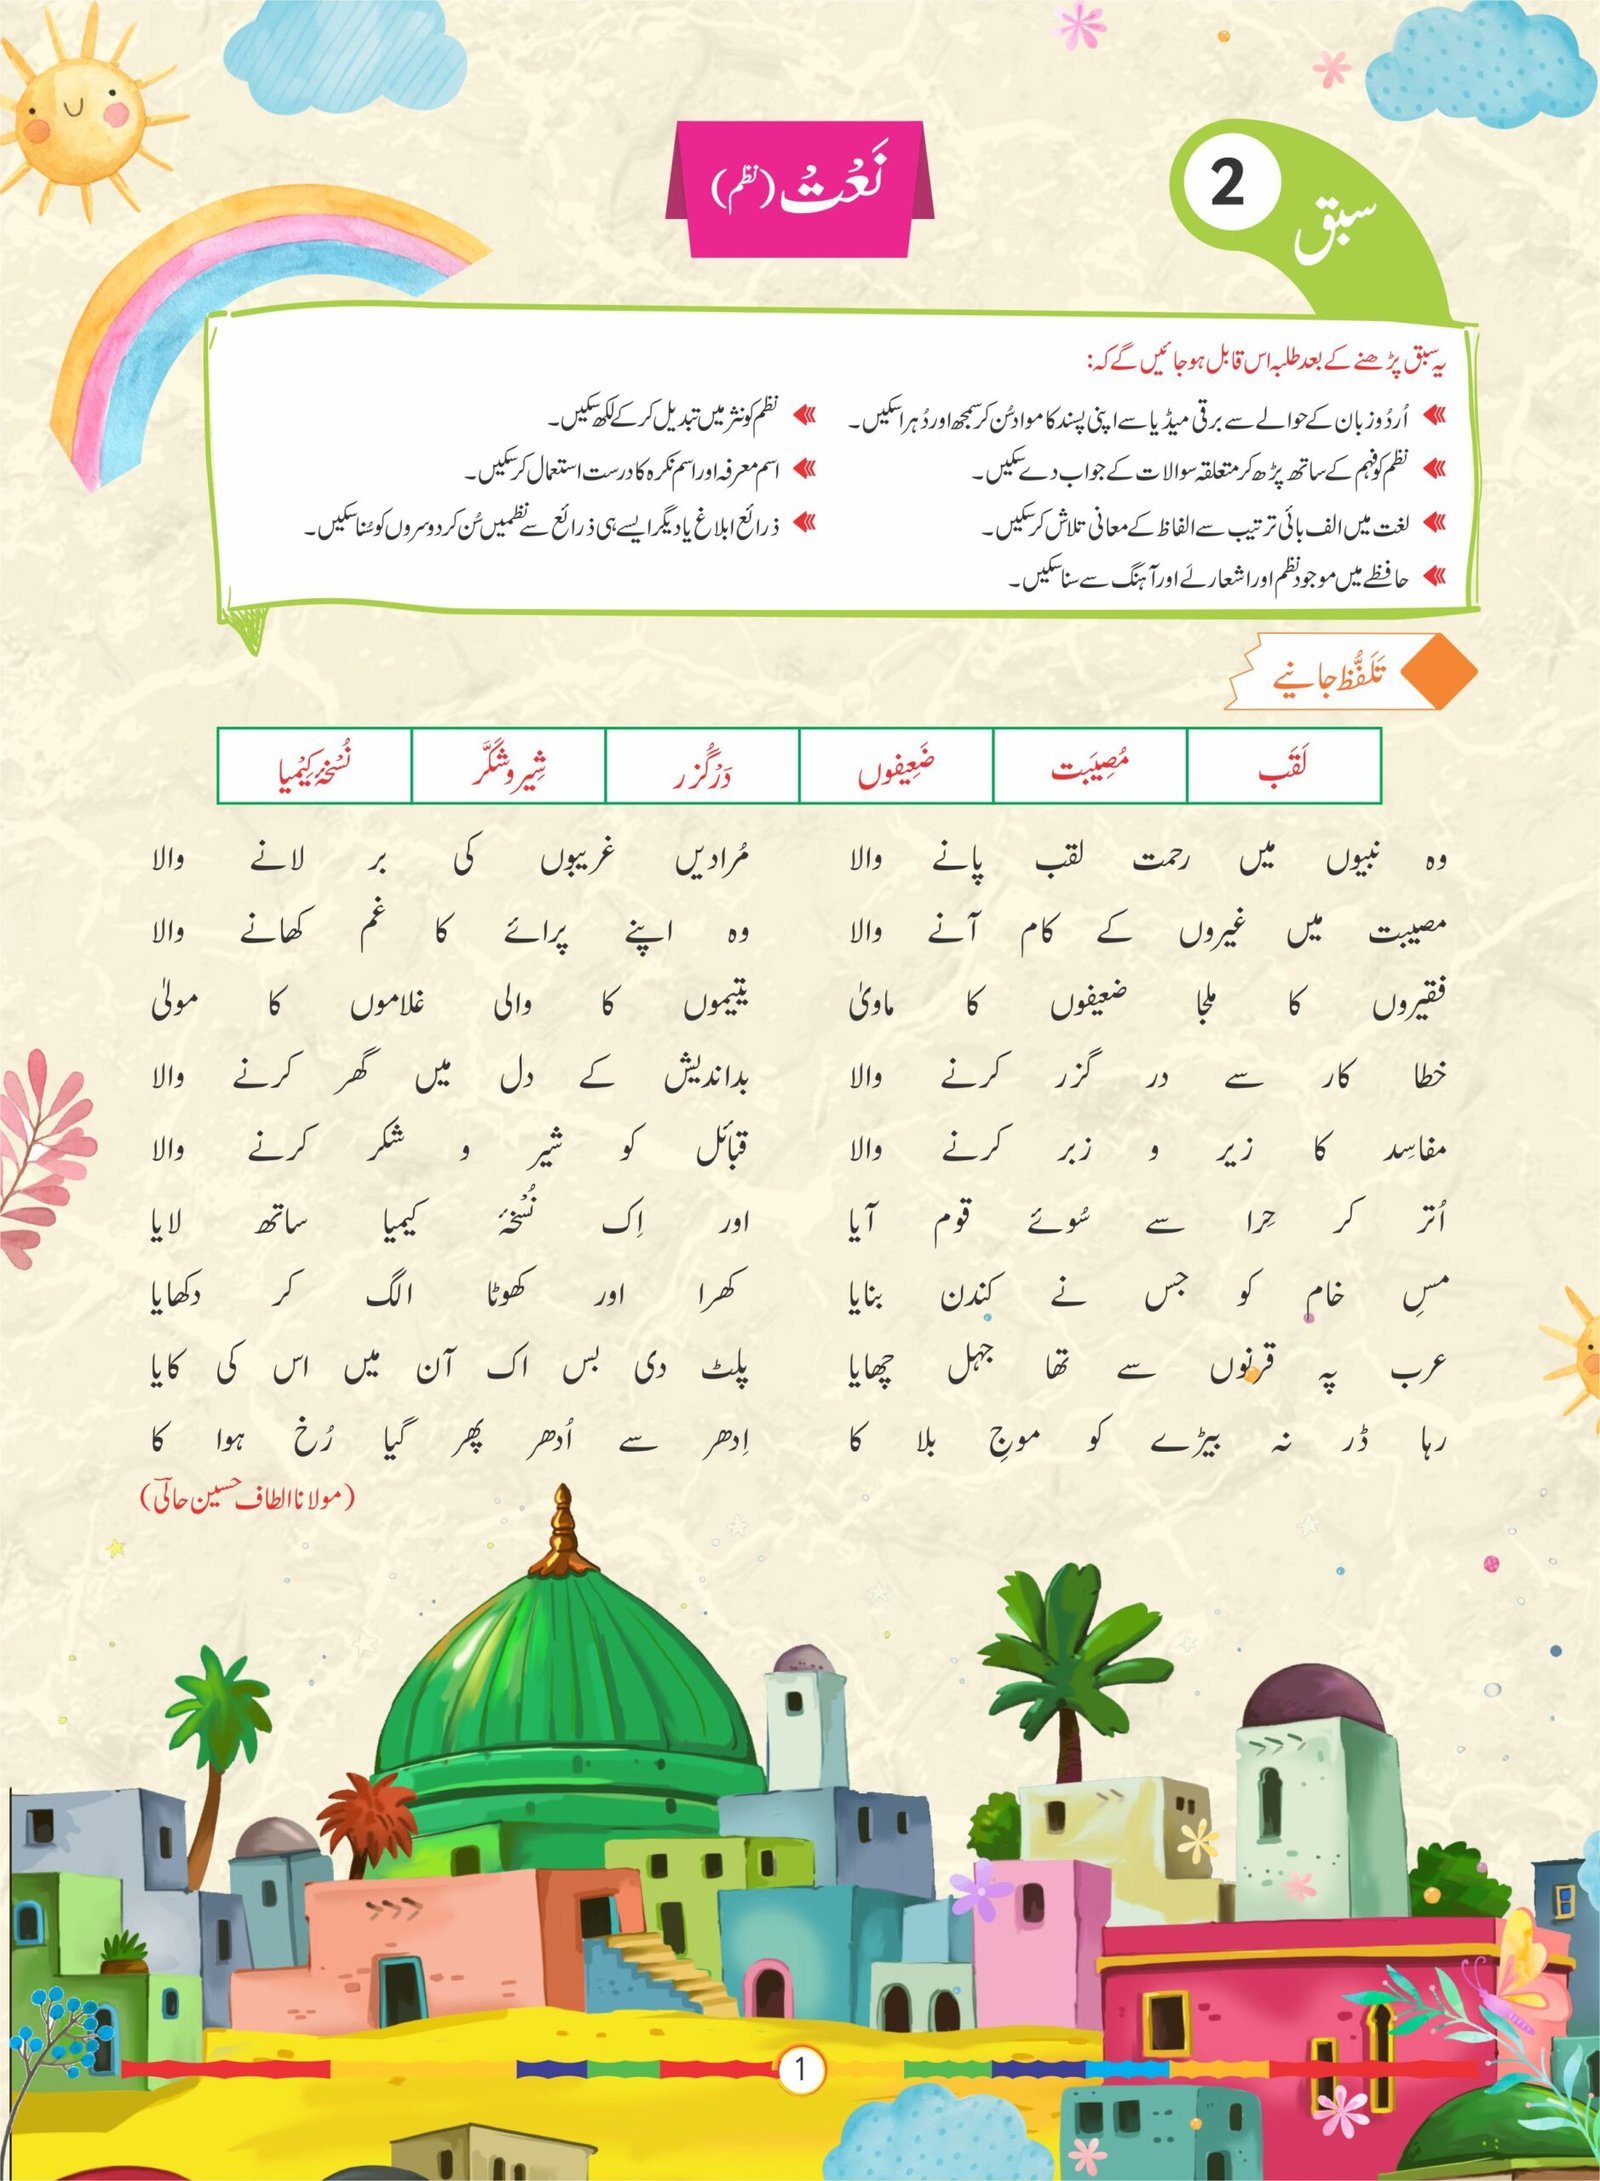 سبق 2
نَعْتْ (نظم)
یہ سبق پڑھنے کے بعد طلبہ اس قابل ہو جائیں گے کہ:
اُردُو زبان کے حوالے سے برقی میڈیا سے اپنی پسند کا مواد سُن کر سمجھ اور دُہرا سکیں۔
نظم کو فہم کے ساتھ پڑھ کر متعلقہ سوالات کے جواب دے سکیں۔
لغت میں الف بائی ترتیب سے الفاظ کے معانی تلاش کر سکیں۔
حافظے میں موجود نظم اور اشعار لے اور آہنگ سے سنا سکیں۔
نظم کو نثر میں تبدیل کر کے لکھ سکیں۔
اسم معرفہ اور اسم نکرہ کا درست استعمال کر سکیں۔
ذرائع ابلاغ یا دیگر ایسے ہی ذرائع سے نظمیں سُن کر دوسروں کو سُنا سکیں۔
تَلَفُّظ جانیے
لَقَب مُصِیبَت ضَعِیفوں دَرْگُزر شِیر و شَکَّر نُسْخۂ کِیْمیا
وہ نبیوں میں رحمت لقب پانے والا مُرادیں غریبوں کی بر لانے والا
مصیبت میں غیروں کے کام آنے والا وہ اپنے پرائے کا غم کھانے والا
فقیروں کا ملجا ضعیفوں کا ماویٰ یتیموں کا والی غلاموں کا مولیٰ
خطا کار سے در گزر کرنے والا بداندیش کے دل میں گھر کرنے والا
مفاسِد کا زیر و زبر کرنے والا قبائل کو شیر و شکر کرنے والا
اُتر کر حِرا سے سُوئے قوم آیا اور اِک نُسْخۂ کیمیا ساتھ لایا
مسِ خام کو جس نے کندن بنایا کھرا اور کھوٹا الگ کر دکھایا
عرب پہ قرنوں سے تھا جہل چھایا پلٹ دی بس اک آن میں اس کی کایا
رہا ڈر نہ بیڑے کو موجِ بلا کا اِدھر سے اُدھر پھر گیا رُخ ہوا کا
(مولانا الطاف حسین حالیؔ)
1